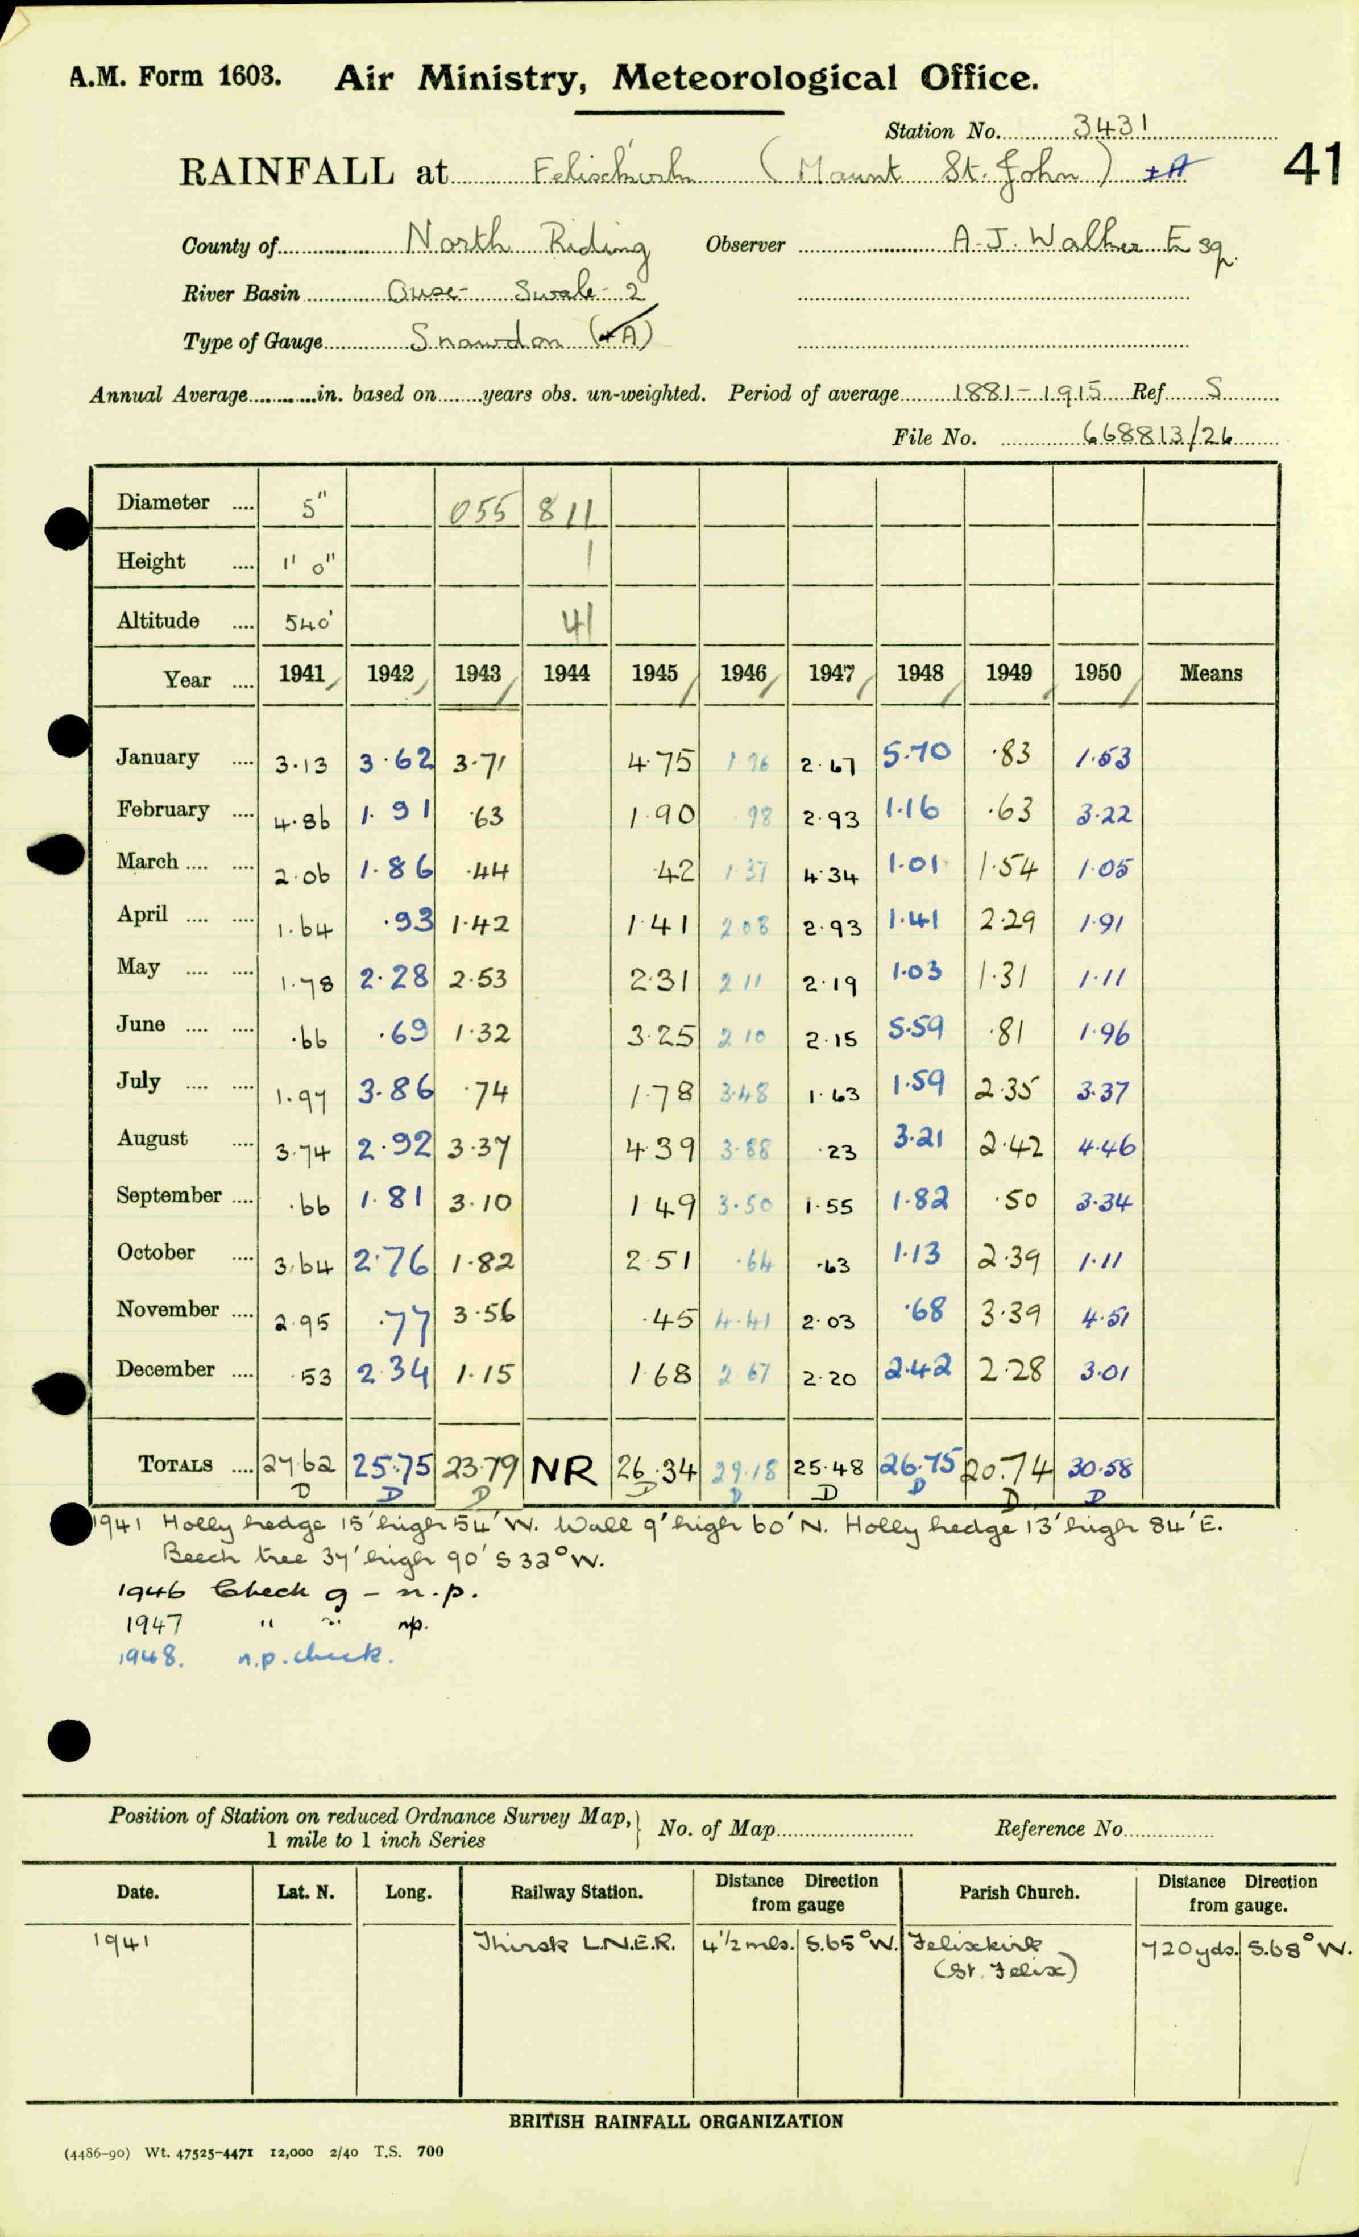 A.M. Form 1603. Air Ministry, Meteorological Office.
Station No. 3431
RAINFALL at Felixkirk (Mount St. John) +A 41
County of North Riding Observer A.J. Walker Esq.
River Basin Ouse- Swale- 2
Type of Gauge Snowdon (+A)
Annual Average in. based on years obs. un-weighted. Period of average 1881-1915 Ref. S
File No. 668813/26
Diameter 5" 055 811
Height 1' 0" 1
Altitude 540' 41
Year 1941 1942 1943 1944 1945 1946 1947 1948 1949 1950 Means
January 3.13 3.62 3.71 4.75 1.96 2.67 5.70 .83 1.53
February 4.86 1.91 .63 1.90 .98 2.93 1.16 .63 3.22
March 2.06 1.86 .44 .42 1.37 4.34 1.01 1.54 1.05
April 1.64 .93 1.42 1.41 2.08 2.93 1.41 2.29 1.91
May 1.78 2.28 2.53 2.31 2.11 2.19 1.03 1.31 1.11
June .66 .69 1.32 3.25 2.10 2.15 5.59 .81 1.96
July 1.97 3.86 .74 1.78 3.48 1.63 1.59 2.35 3.37
August 3.74 2.92 3.37 4.39 3.88 .23 3.21 2.42 4.46
September .66 1.81 3.10 1.49 3.50 1.55 1.82 .50 3.34
October 3.64 2.76 1.82 2.51 .64 .63 1.13 2.39 1.11
November 2.95 .77 3.56 .45 4.41 2.03 .68 3.39 4.51
December .53 2.34 1.15 1.68 2.67 2.20 2.42 2.28 3.01
TOTALS 27.62 25.75 23.79 NR 26.34 29.18 25.48 26.75 20.74 30.58
D D D D D D D D D
1941 Holly hedge 15' high 54' W. Wall 9' high 60' N. Holly hedge 13' high 84' E.
Beech tree 37' high 90' S 32° W.
1946 Check g - n.p.
1947 " " np.
1948. n.p. check.
Position of Station on reduced Ordnance Survey Map, 1 mile to 1 inch Series } No. of Map Reference No.
Date. Lat. N. Long. Railway Station. Distance Direction from gauge Parish Church. Distance Direction from gauge.
1941 Thirsk L.N.E.R. 4½ mls. S.65° W. Felixkirk 720 yds. S.68° W.
(St. Felix)
BRITISH RAINFALL ORGANIZATION
(4486-90) Wt. 47525-4471 12,000 2/40 T.S. 700